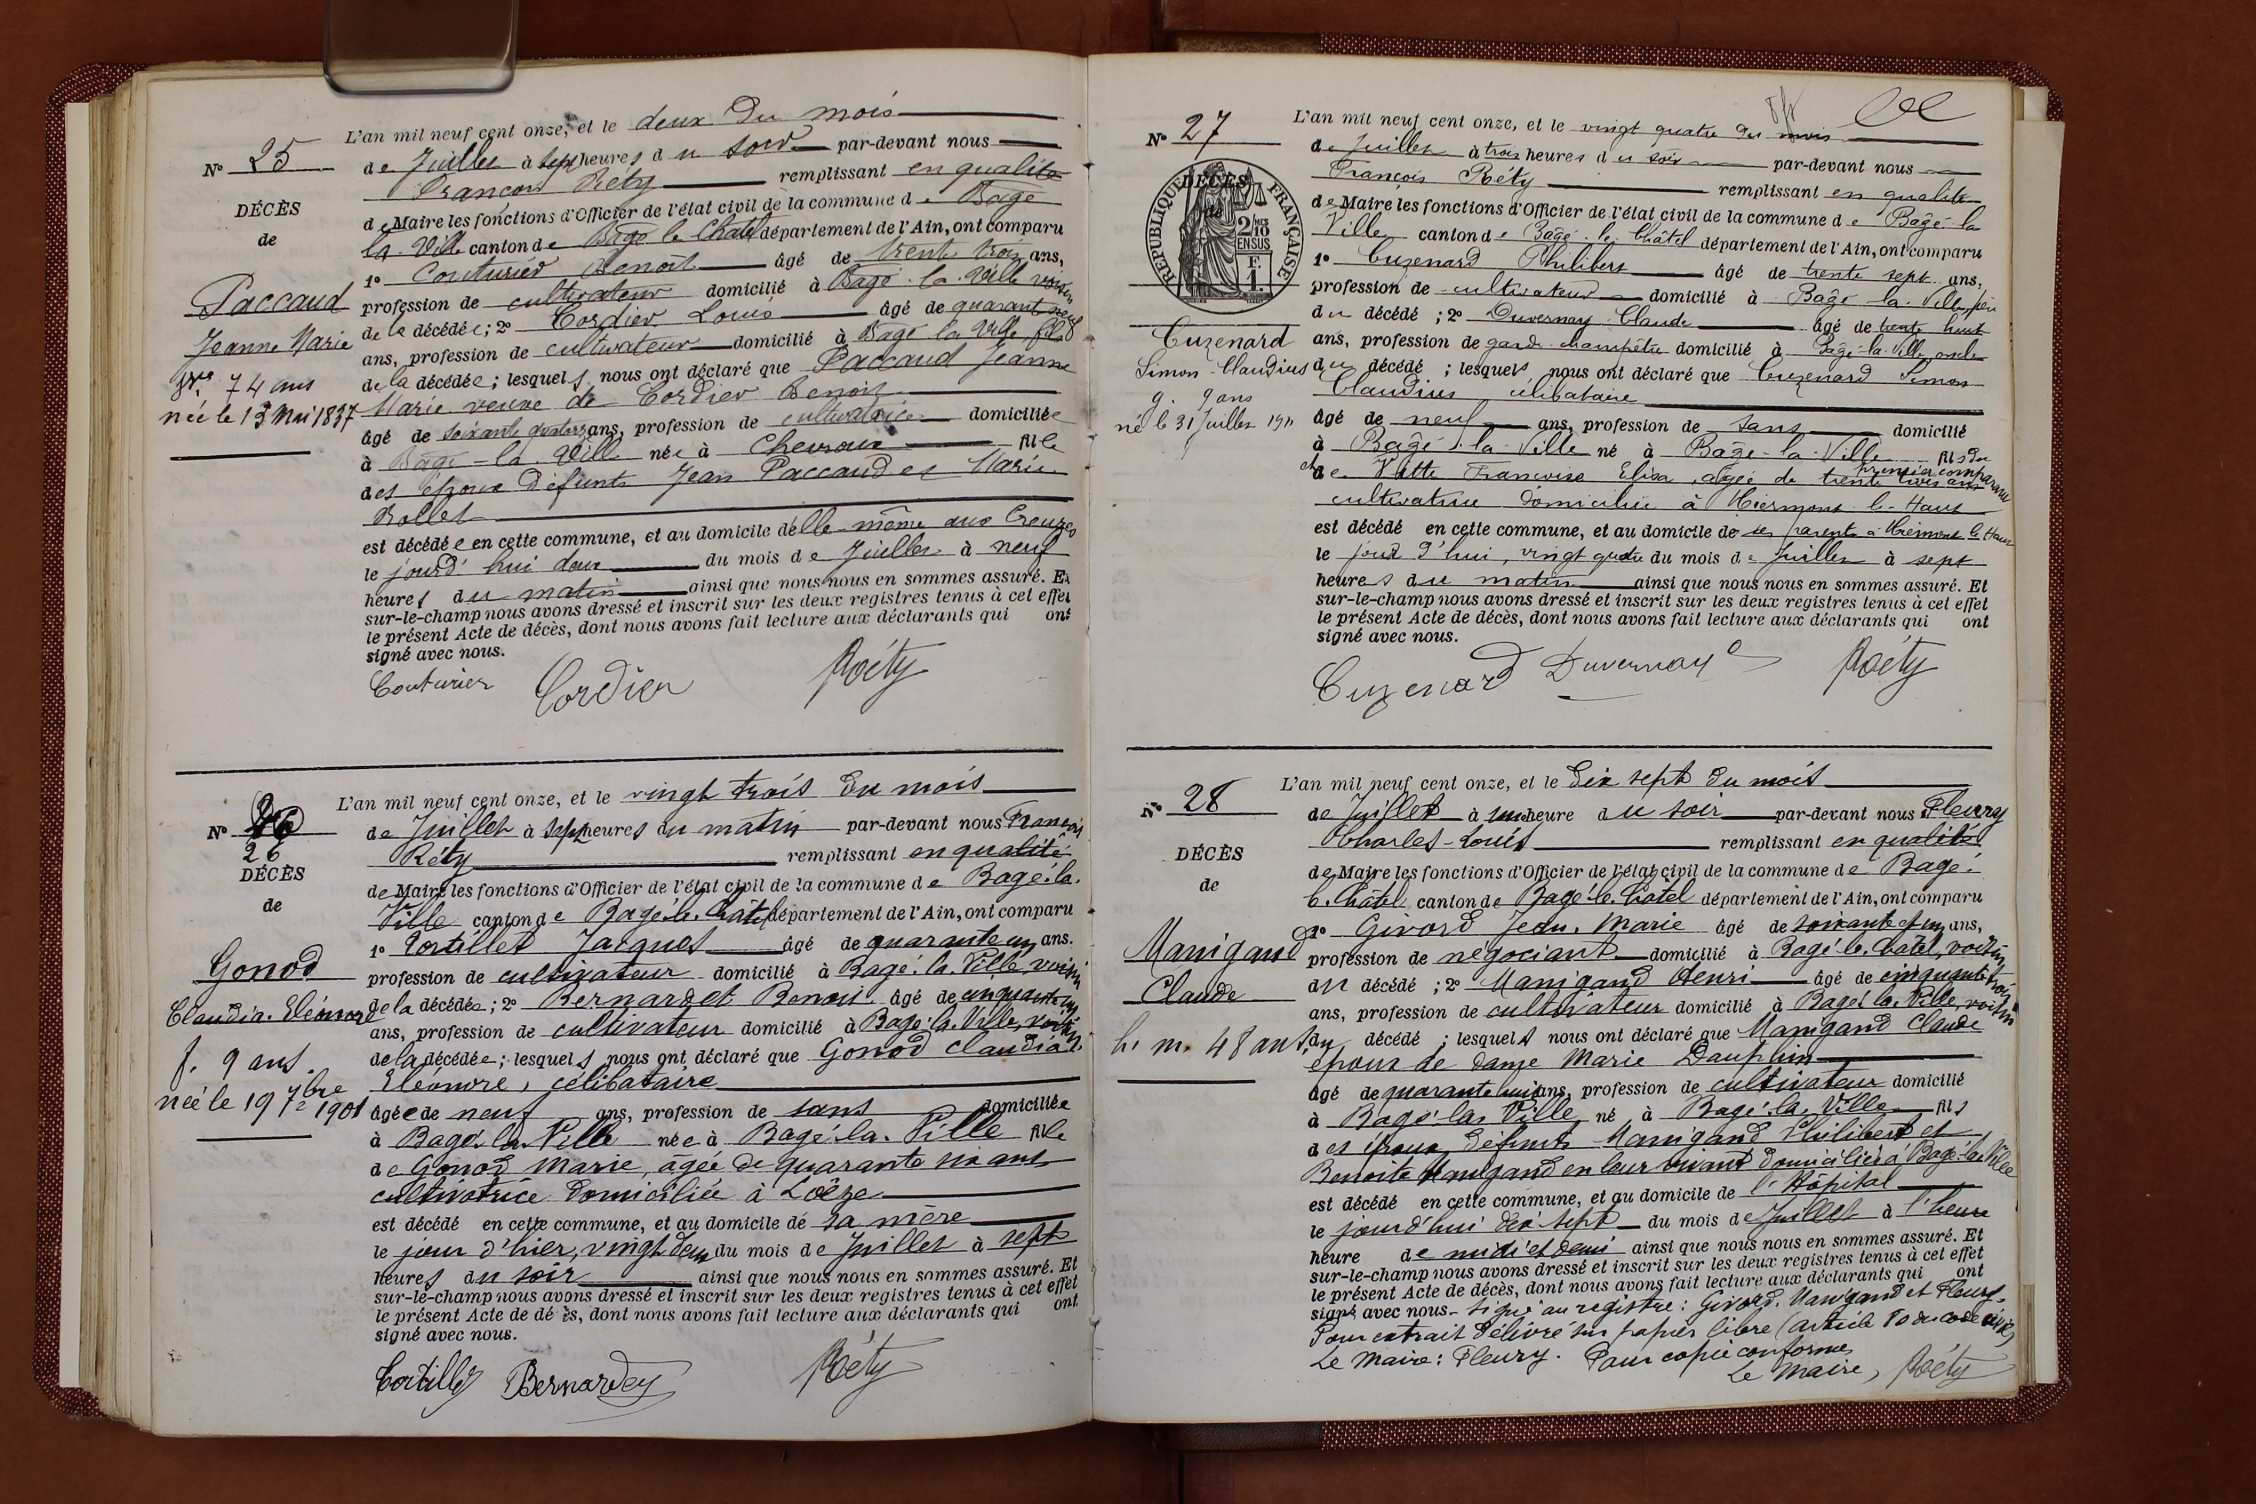 L'an mil neuf cent onze, et le deux du mois
N° 25
de Juillet à sept heures du soir par-devant nous
François Réty remplissant en qualité
DÉCÈS
de Maire les fonctions d'Officier de l'état civil de la commune de Bagé
de
la Ville canton de Bagé le Châtel département de l'Ain, ont comparu
1° Couturier Benoît âgé de trente trois ans,
Paccaud
profession de cultivateur domicilié à Bagé la Ville voisin
Jeanne Marie
de la décédée; 2° Cordier Louis âgé de quarante neuf
ans, profession de cultivateur domicilié à Bagé la Ville fils
74 ans
de la décédée; lesquels nous ont déclaré que Paccaud Jeanne
née le 13 Mai 1837
Marie veuve de Cordier Benoit
âgé de soixante quatorze ans, profession de cultivatrice domiciliée
à Bagé-la Ville née à Chevroux fille
des époux défunts Jean Paccaud et Marie
Rollet
est décédée en cette commune, et au domicile d'elle-même aux Creuzes
le jourd'hui deux du mois de Juillet à neuf
heures du matin ainsi que nous nous en sommes assuré. Et
sur-le-champ nous avons dressé et inscrit sur les deux registres tenus à cet effet
le présent Acte de décès, dont nous avons fait lecture aux déclarants qui ont
signé avec nous.
Couturier Cordier Réty
L'an mil neuf cent onze, et le vingt trois du mois
N° 26
26
de Juillet à sept heures du matin par-devant nous François
Réty remplissant en qualité
DÉCÈS
de Maire les fonctions d'Officier de l'état civil de la commune de Bagé-la-
de
Ville canton de Bagé-le-Châtel département de l'Ain, ont comparu
1° Tortillet Jacques âgé de quarante un ans.
Gonod
profession de cultivateur domicilié à Bagé-la-Ville, voisin
Claudia-Eléonore
de la décédée; 2° Bernardet Benoit âgé de cinquante un
ans, profession de cultivateur domicilié à Bagé-la-Ville, voisin
f. 9 ans.
de la décédée; lesquels nous ont déclaré que Gonod Claudia
née le 19 7bre 1901
Eléonore, célibataire
âgée de neuf ans, profession de sans domiciliée
à Bagé-la-Ville née à Bagé-la-Ville fille
de Gonod Marie, âgée de quarante six ans
cultivatrice domiciliée à Loëze
est décédé en cette commune, et au domicile de sa mère
le jour d'hier, vingt deux du mois de Juillet à sept
heures du soir ainsi que nous nous en sommes assuré. Et
sur-le-champ nous avons dressé et inscrit sur les deux registres tenus à cet effet
le présent Acte de dé ès, dont nous avons fait lecture aux déclarants qui ont
signé avec nous.
Tortillet Bernardet Réty
L'an mil neuf cent onze, et le vingt quatre du mois
N° 27
de Juillet à trois heures du soir par-devant nous
François Réty remplissant en qualité
DÉCÈS
de
RÉPUBLIQUE FRANÇAISE
2/10 EN SUS
F. 1.
de Maire les fonctions d'Officier de l'état civil de la commune de Bâgé-la
Ville canton de Bâgé-le-Châtel département de l'Ain, ont comparu
1° Cuzenard Philibert âgé de trente sept ans,
profession de cultivateur domicilié à Bâgé-la-Ville, père
du décédé; 2° Duvernay Claude âgé de trente huit
Cuzenard
ans, profession de garde-champêtre domicilié à Bâgé-la-Ville, oncle
Simon-Claudius
du décédé; lesquels nous ont déclaré que Cuzenard Simon
Claudius célibataire
g. 9 ans
né le 31 Juillet 1911
âgé de neuf ans, profession de sans domicilié
à Bâgé-la-Ville né à Bâgé-la-Ville fils du
premier comparant
et de Vitte Françoise Elisa, âgée de trente trois ans
cultivatrice domiciliée à Miermont-le-Haut
est décédé en cette commune, et au domicile de ses parents à Miermont le Haut
le jour d'hui, vingt quatre du mois de Juillet à sept
heures du matin ainsi que nous nous en sommes assuré. Et
sur-le-champ nous avons dressé et inscrit sur les deux registres tenus à cet effet
le présent Acte de décès, dont nous avons fait lecture aux déclarants qui ont
signé avec nous.
Cuzenard Duvernay C Réty
L'an mil neuf cent onze, et le dix sept du mois
N° 28
de Juillet à une heure du soir par-devant nous Fleury
Charles-Louis remplissant en qualité
DÉCÈS
de Maire les fonctions d'Officier de l'état civil de la commune de Bagé-
de
le-Châtel canton de Bagé-le-Châtel département de l'Ain, ont comparu
1° Givord Jean-Marie âgé de soixante et un ans,
Manigand
profession de négociant domicilié à Bagé-le-Châtel, voisin
Claude
du décédé; 2° Manigand Henri âgé de cinquante trois
ans, profession de cultivateur domicilié à Bagé-la-Ville, voisin
h. m. 48 ans
du décédé; lesquels nous ont déclaré que Manigand Claude
époux de dame Marie Dauphin
âgé de quarante huit ans, profession de cultivateur domicilié
à Bagé-la-Ville né à Bagé-la-Ville fils
des époux défunts Manigand Philibert et
Benoite Manigand en leur vivant domiciliés à Bagé-la-Ville
est décédé en cette commune, et au domicile de l'Hôpital
le jourd'hui dix-sept du mois de Juillet à l'heure
heure de midi et demi ainsi que nous nous en sommes assuré. Et
sur-le-champ nous avons dressé et inscrit sur les deux registres tenus à cet effet
le présent Acte de décès, dont nous avons fait lecture aux déclarants qui ont
signé avec nous. Signé au registre: Givord, Manigand et Fleury.
Pour extrait délivré sur papier libre (article 80 du code civil)
Le Maire: Fleury. Pour copie conforme
Le Maire, Réty